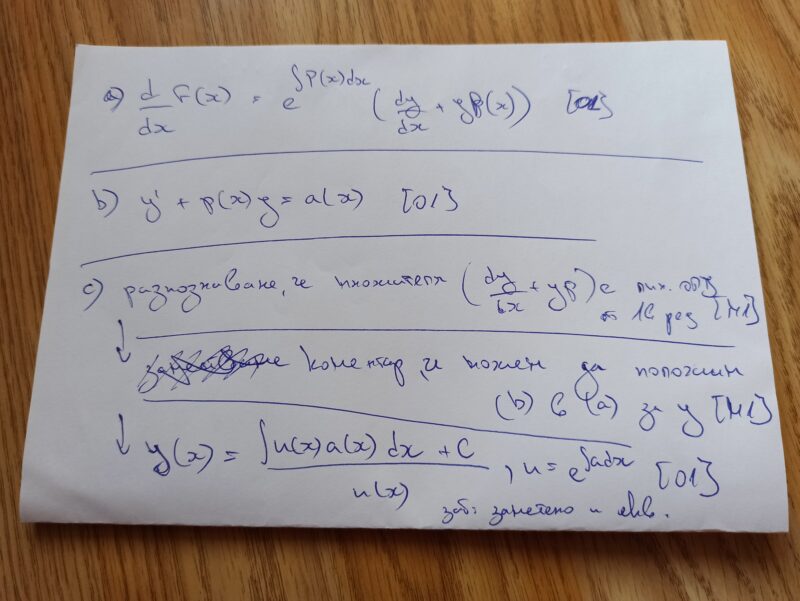 a) d/dx F(x) = e^{∫P(x)dx} (dy/dx + yp(x)) [O1]
b) y' + p(x)y = a(x) [O1]
c) разпознаване, че множителя (dy/dx + yp) е лин. ОДУ
от 1в ред [M1]
↓ коментар, че можем да положим
(b) в (a) за y [M1]
↓ y(x) = (∫u(x)a(x) dx + C)/u(x), u = e^{∫adx} [O1]
заб: заметено и екв.